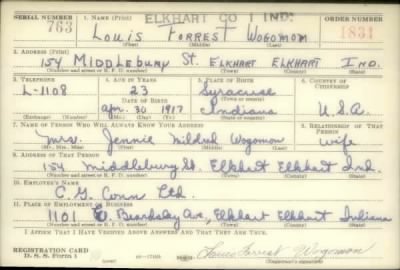 SERIAL NUMBER 1. NAME (Print) ELKHART CO 1 IND: ORDER NUMBER
763 Louis Forrest Wogomon 1831
(First) (Middle) (Last)
2. ADDRESS (Print)
154 Middlebury St. Elkhart Elkhart Ind.
(Number and street or R. F. D. number) (Town) (County) (State)
3. TELEPHONE 4. AGE IN YEARS 5. PLACE OF BIRTH 6. COUNTRY OF CITIZENSHIP
L-1108 23 Syracuse
DATE OF BIRTH (Town or county)
Apr. 30 1917 Indiana U.S.A.
(Exchange) (Number) (Mo.) (Day) (Yr.) (State or country)
7. NAME OF PERSON WHO WILL ALWAYS KNOW YOUR ADDRESS 8. RELATIONSHIP OF THAT PERSON
Mrs. Jennie Mildred Wogomon wife
(Mr., Mrs., Miss) (First) (Middle) (Last)
9. ADDRESS OF THAT PERSON
154 Middlebury St. Elkhart Elkhart Ind.
(Number and street or R. F. D. number) (Town) (County) (State)
10. EMPLOYER'S NAME
C. G. Conn Ltd.
11. PLACE OF EMPLOYMENT OR BUSINESS
1101 E. Beardsley Ave, Elkhart Elkhart Indiana
(Number and street or R. F. D. number) (Town) (County) (State)
I AFFIRM THAT I HAVE VERIFIED ABOVE ANSWERS AND THAT THEY ARE TRUE.
REGISTRATION CARD
D. S. S. Form 1 Louis Forrest Wogomon
(Registrant's signature)